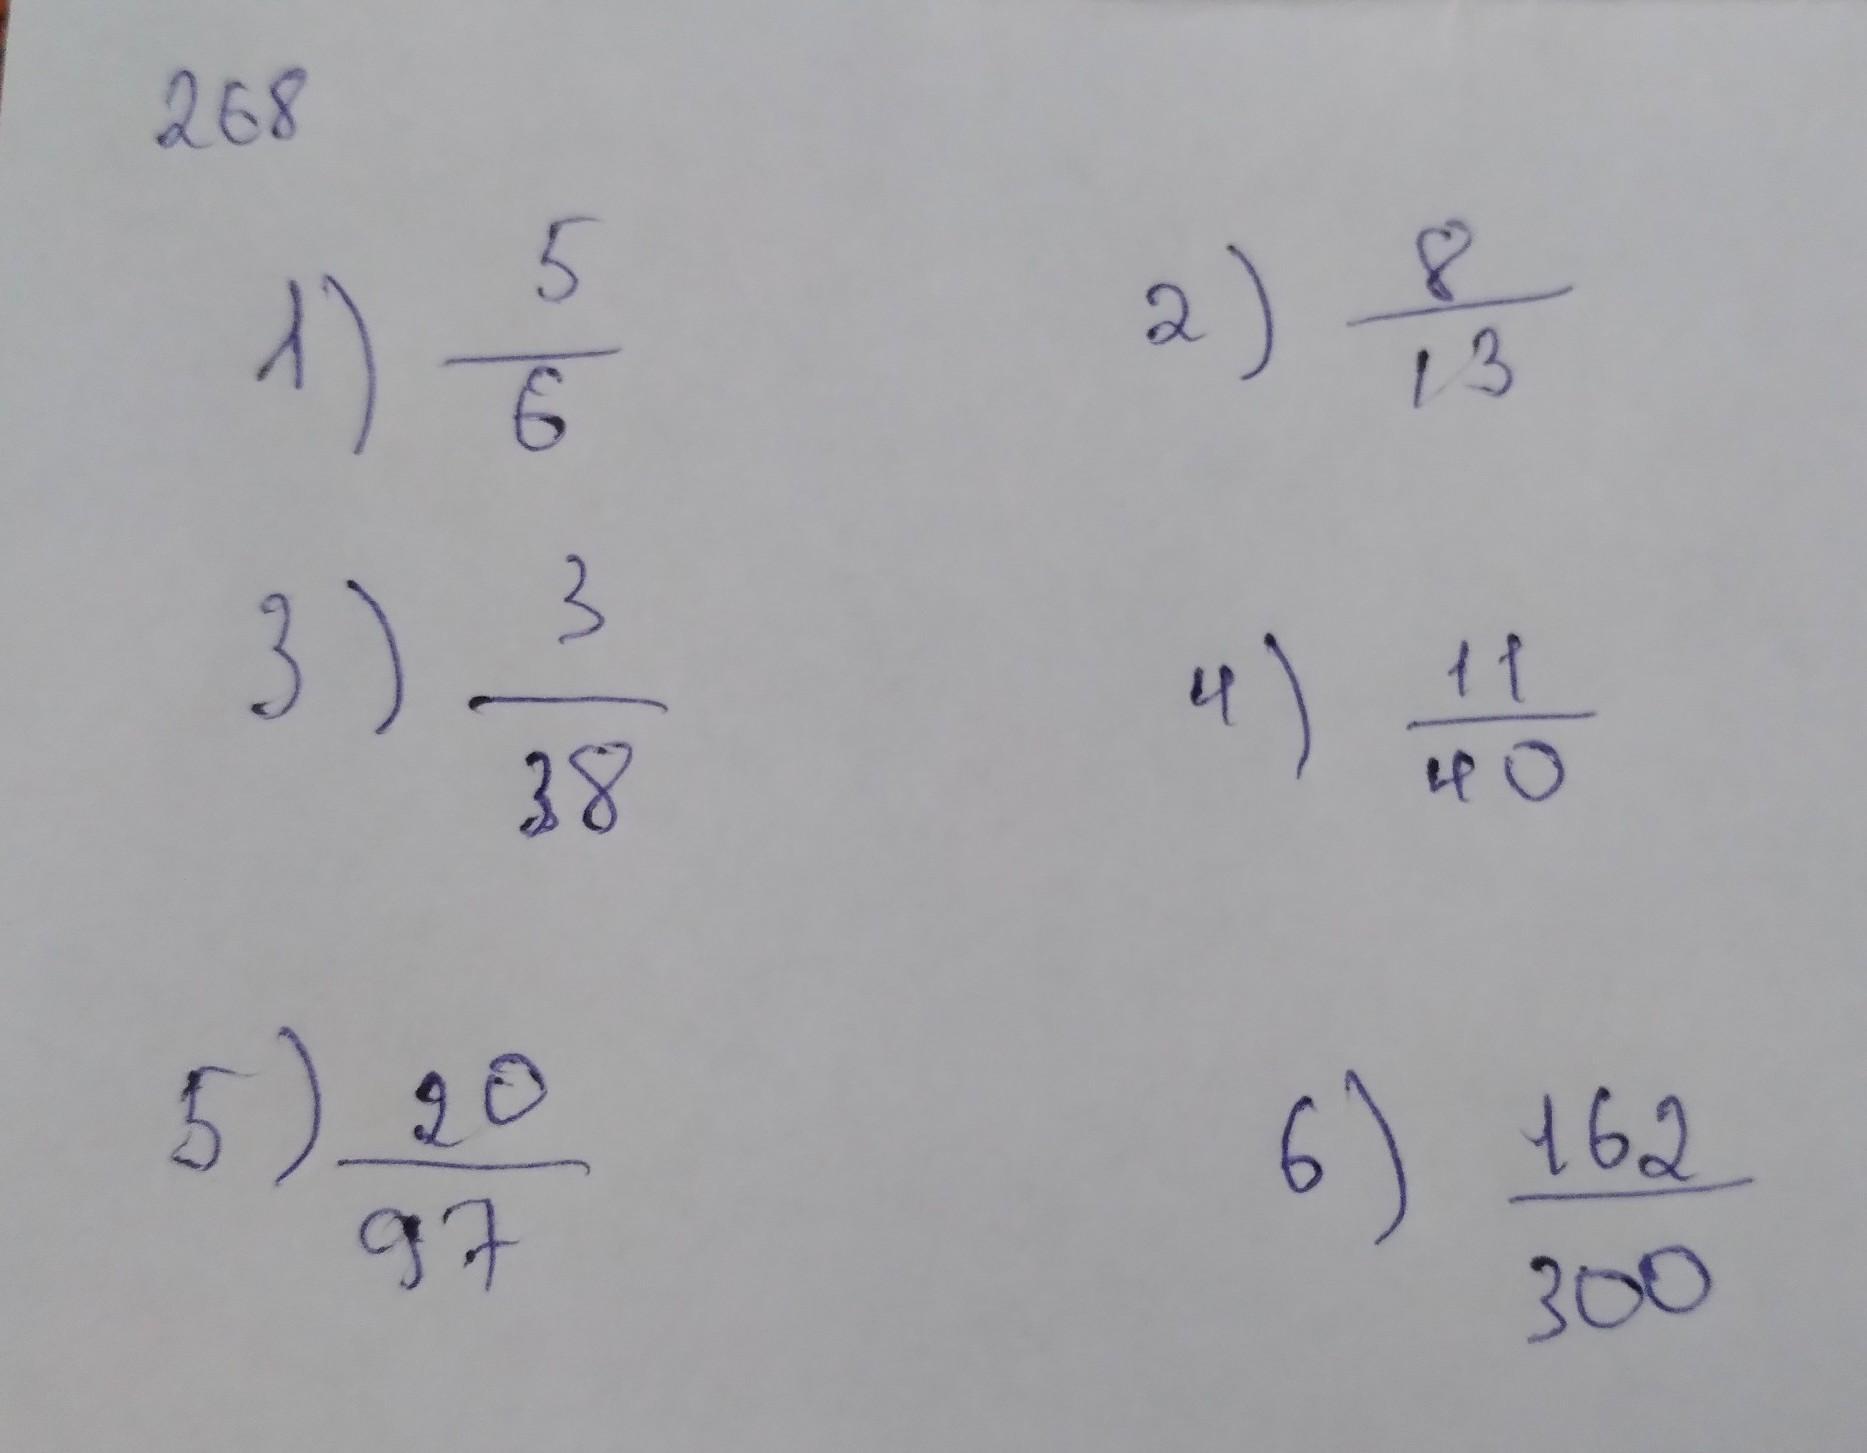 268
1) 5/6
2) 8/13
3) 3/38
4) 11/40
5) 20/97
6) 162/300